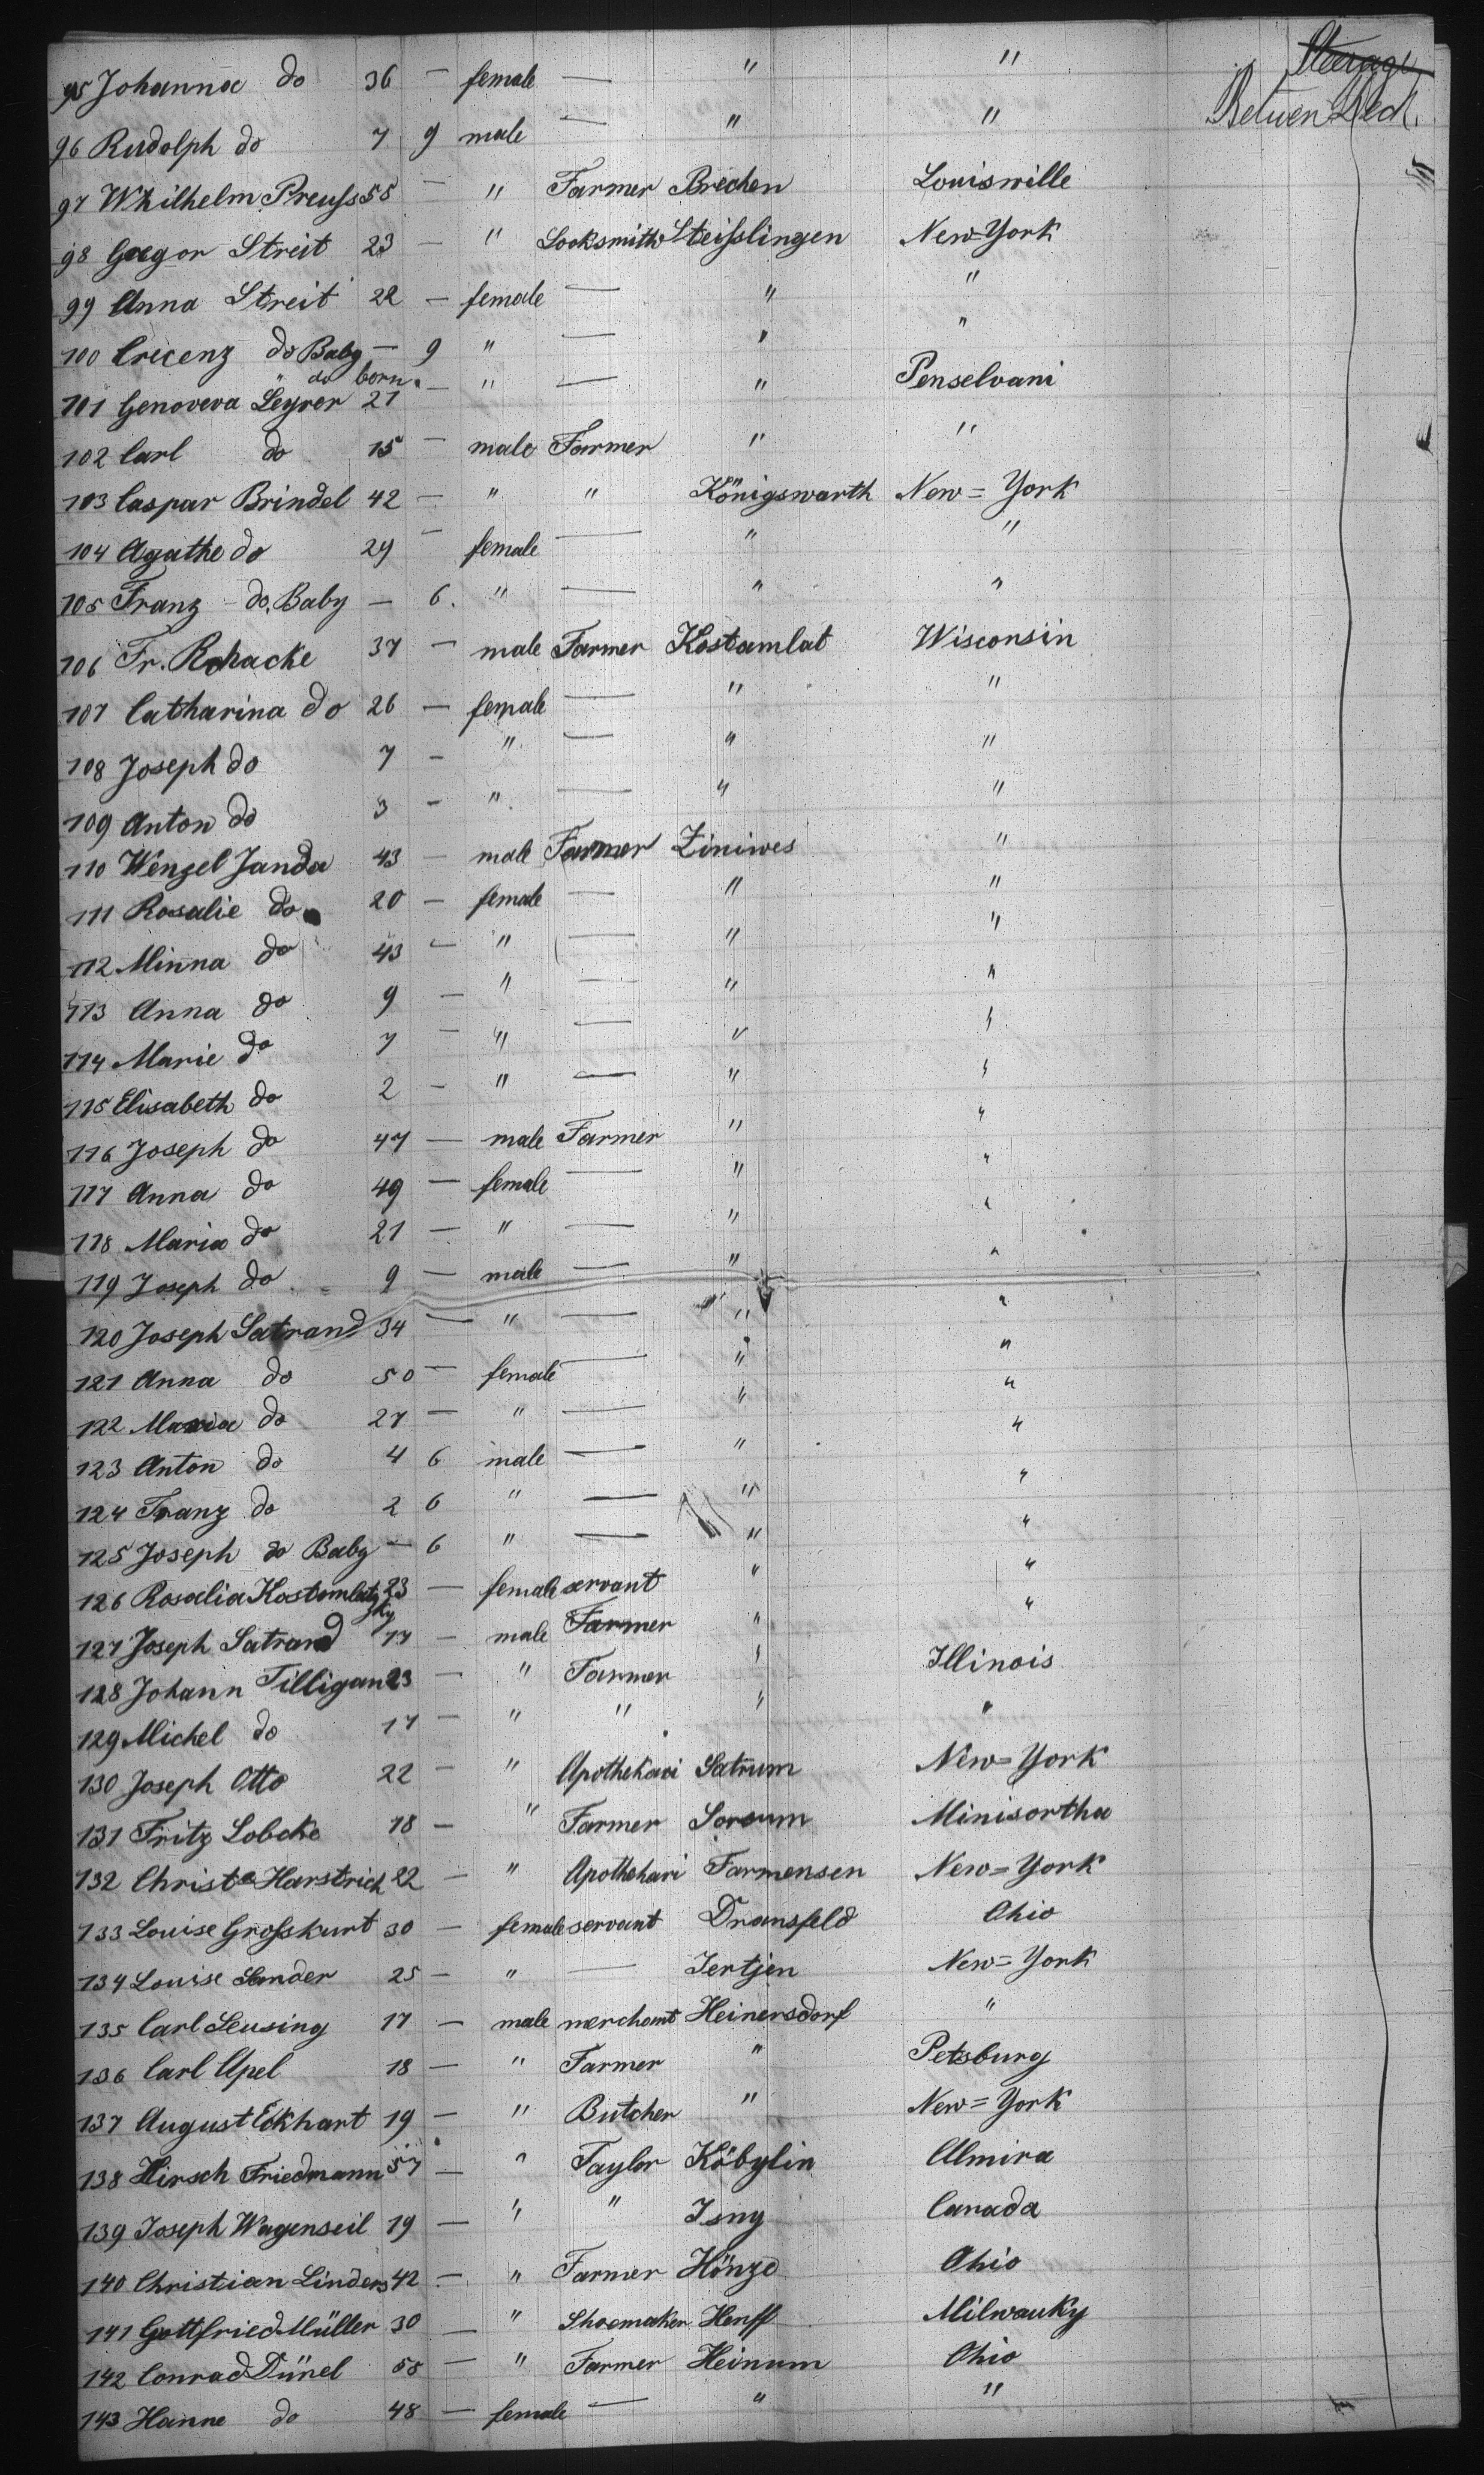 Steerage
Betwen Deck.
95 Johanna do 36 — female — " "
96 Rudolph do 7 9 male — " "
97 Whilhelm Preuss 55 — " Farmer Brechen Louiswille
98 Gregor Streit 23 — " Locksmith Steisslingen New=York
99 Anna Streit 22 — female — " "
100 Crecenz do Baby — 9 " — " "
" do born.
101 Genoveva Leyrer 21 — " — " Penselvani
102 Carl do 15 — male Farmer " "
103 Caspar Brindel 42 — " " Königswarth New=York
104 Agathe do 24 — female — " "
105 Franz do. Baby — 6. " — " "
106 Fr. Rohacke 37 — male Farmer Kostamlat Wisconsin
107 Catharina do 26 — female — " "
108 Joseph do 7 — " — " "
109 Anton do 3 — " — " "
110 Wenzel Janda 43 — male Farmer Ziniwes "
111 Rosalie do 20 — female — " "
112 Minna do 43 — " — " "
113 Anna do 9 — " — " "
114 Marie do 7 — " — " "
115 Elisabeth do 2 — " — " "
116 Joseph do 47 — male Farmer " "
117 Anna do 49 — female — " "
118 Maria do 21 — " — " "
119 Joseph do 9 — male — " "
120 Joseph Satrand 34 — " — " "
121 Anna do 50 — female — " "
122 Maria do 27 — " — " "
123 Anton do 4 6 male — " "
124 Franz do 2 6 " — " "
125 Joseph do Baby — 6 " — " "
126 Rosalia Kostomlatzky 23 — female servant " "
127 Joseph Satrand 17 — male Farmer " "
128 Johann Tilligan 23 — " Farmer " Illinois
129 Michel do 17 — " " " "
130 Joseph Otto 22 — " Apothekari Satrum New=York
131 Fritz Lobcke 18 — " Farmer Sorsum Minisortha
132 Christ Harstrich 22 — " Apothekari Farmensen New=York
133 Louise Grosskurt 30 — female servant Dransfeld Ohio
134 Louise Sander 25 — " — Jertjen New=York
135 Carl Leusing 17 — male merchant Heinersdorf "
136 Carl Apel 18 — " Farmer " Petsburg
137 August Eckhart 19 — " Butcher " New=York
138 Hirsch Friedmann 57 — " Taylor Köbylin Almira
139 Joseph Wagenseil 19 — " " Isny Canada
140 Christian Linders 42 — " Farmer Hönze Ohio
141 Gottfried Müller 30 — " Shoemaker Henff Milwauky
142 Conrad Dünel 55 — " Farmer Heinum Ohio
143 Hanne do 48 — female — " "